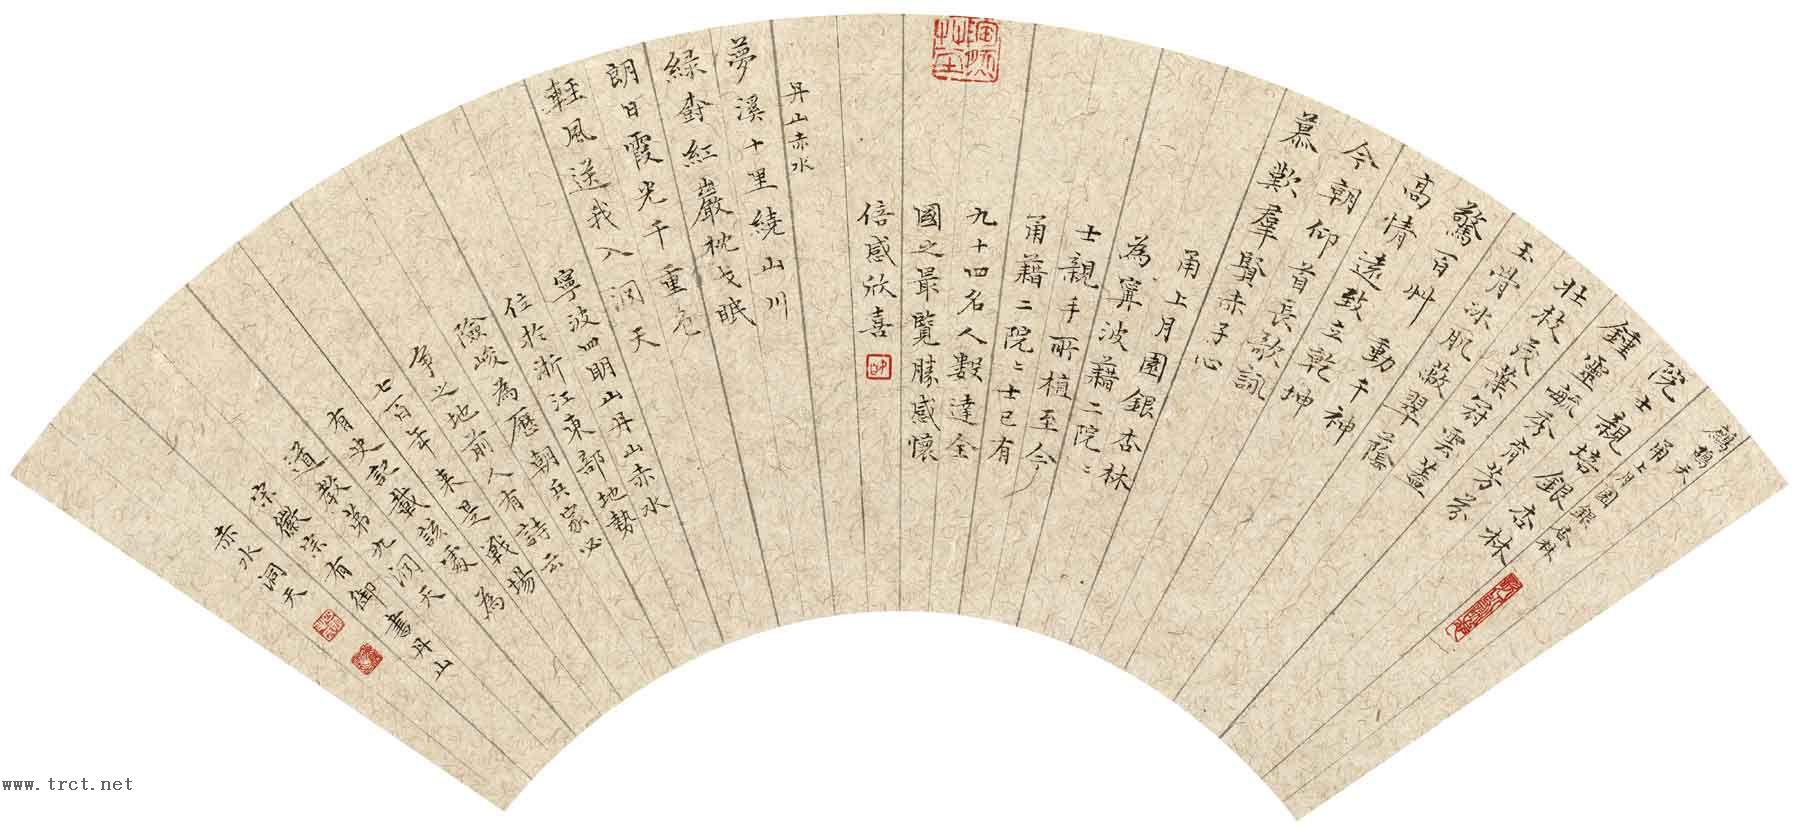 鷓鴣天
甬上月園銀杏林
院士親培銀杏林
鍾靈毓秀育芳芬
壯枝茂葉冠雲蓋
玉骨冰肌蔽翠蔭
驚百艸 動千神
高情遠致立乾坤
今朝仰首長歌詠
慕歎羣賢赤子心
甬上月園銀杏林
為寧波藉二院二
士親手所植至今
甬藉二院二士已有
九十四名人數達全
國之最覽勝感懷
倍感欣喜
丹山赤水
夢溪十里繞山川
緑樹紅巖枕戈眠
朗日霞光千重色
輕風送我入洞天
寧波四明山丹山赤水
位於浙江東部地勢
險峻為歷朝兵家必
爭之地前人有詩云
七百年来是戰場
有史記載該處為
道教第九洞天
宋徽宗有御書丹山
赤水洞天
www.trct.net